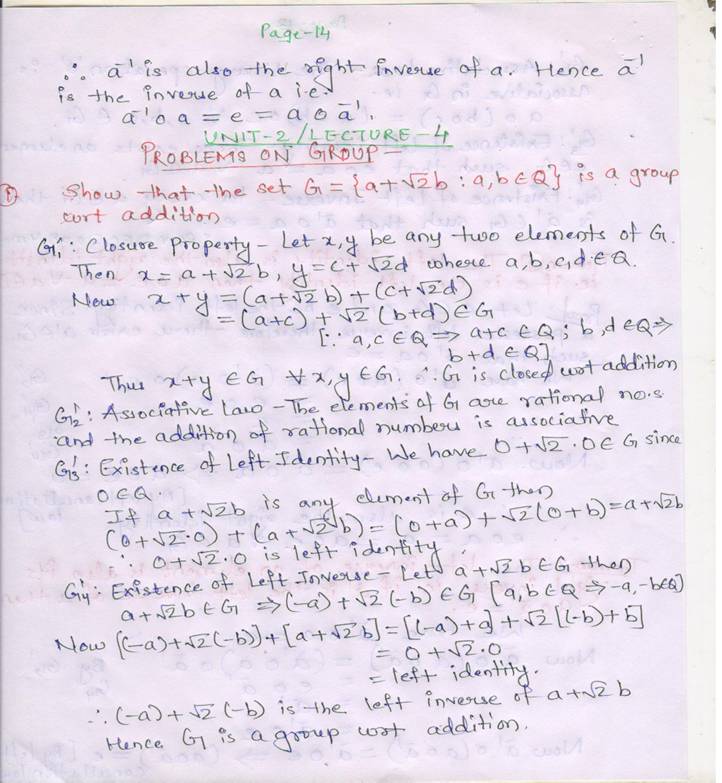 Page-14
∴ a⁻¹ is also the right inverse of a. Hence a⁻¹
is the inverse of a i.e.
a⁻¹ o a = e = a o a⁻¹.
UNIT-2/LECTURE-4
PROBLEMS ON GROUP-
① Show that the set G = {a+√2b : a,b∈Q} is a group
wrt addition
G₁': Closure Property - Let x,y be any two elements of G.
Then x = a+√2b, y = c+√2d where a,b,c,d∈Q.
Now x+y = (a+√2b) + (c+√2d)
= (a+c) + √2 (b+d) ∈G
[∵ a,c∈Q ⇒ a+c∈Q; b,d∈Q⇒
b+d∈Q]
Thus x+y ∈G ∀ x,y ∈G. ∴ G is closed wrt addition
G₂': Associative law - The elements of G are rational no.s.
and the addition of rational numbers is associative
G₃': Existence of Left Identity- We have 0+√2.0∈G since
0∈Q
If a+√2b is any element of G then
(0+√2.0) + (a+√2b) = (0+a) + √2(0+b) = a+√2b
∴ 0+√2.0 is left identity
G₄': Existence of Left Inverse - Let a+√2b∈G then
a+√2b∈G ⇒ (-a)+√2(-b)∈G [a,b∈Q ⇒ -a,-b∈Q]
Now [(-a)+√2(-b)]+[a+√2b] = [(-a)+a] + √2[(-b)+b]
= 0+√2.0
= left identity.
∴ (-a)+√2(-b) is the left inverse of a+√2b
Hence G is a group wrt addition.